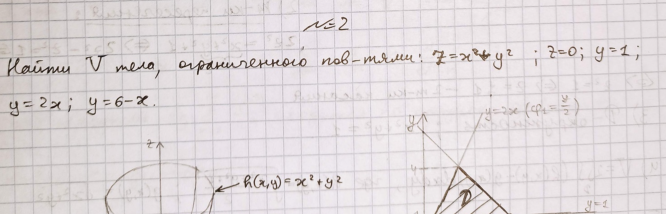 №2
Найти V тела, ограниченного пов-тями: z=x²+y² ; z=0; y=1;
y=2x; y=6-x.
z
h(x,y)=x²+y²
y
y=2x (φ₁=y/2)
4
D
y=1